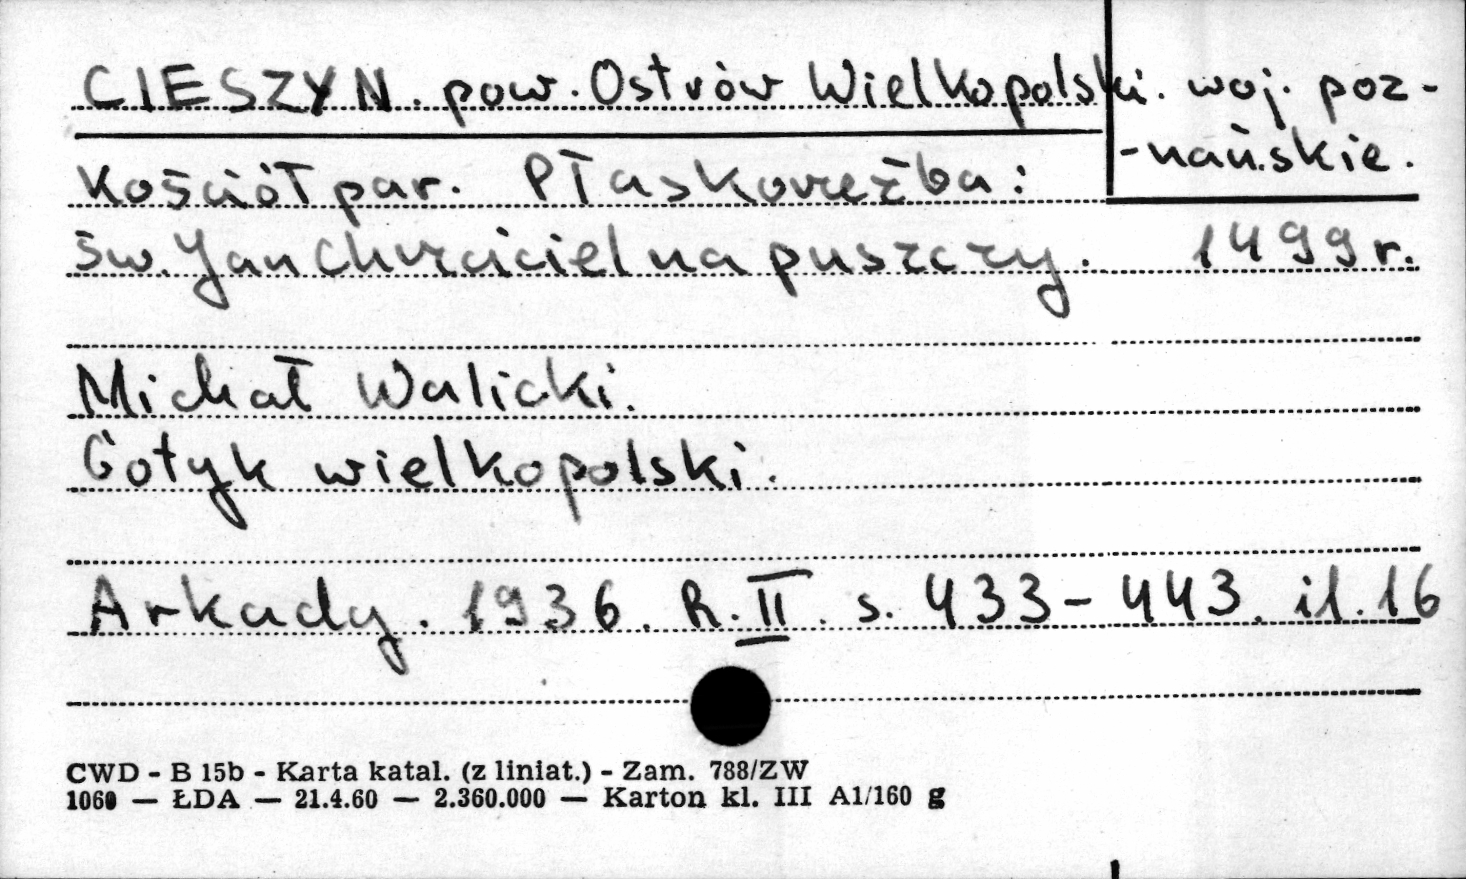 CIESZYN. pow. Ostrów Wielkopolski. woj. poz-
-nańskie.
Kościół par. Płaskorzeźba:
św. Jan Chrzciciel na puszczy. 1499 r.
Michał Walicki.
Gotyk wielkopolski.
Arkady. 1936. R. II. s. 433-443. il. 16
CWD - B 15b - Karta katal. (z liniat.) - Zam. 788/ZW
1060 — ŁDA — 21.4.60 — 2.360.000 — Karton kl. III A1/160 g